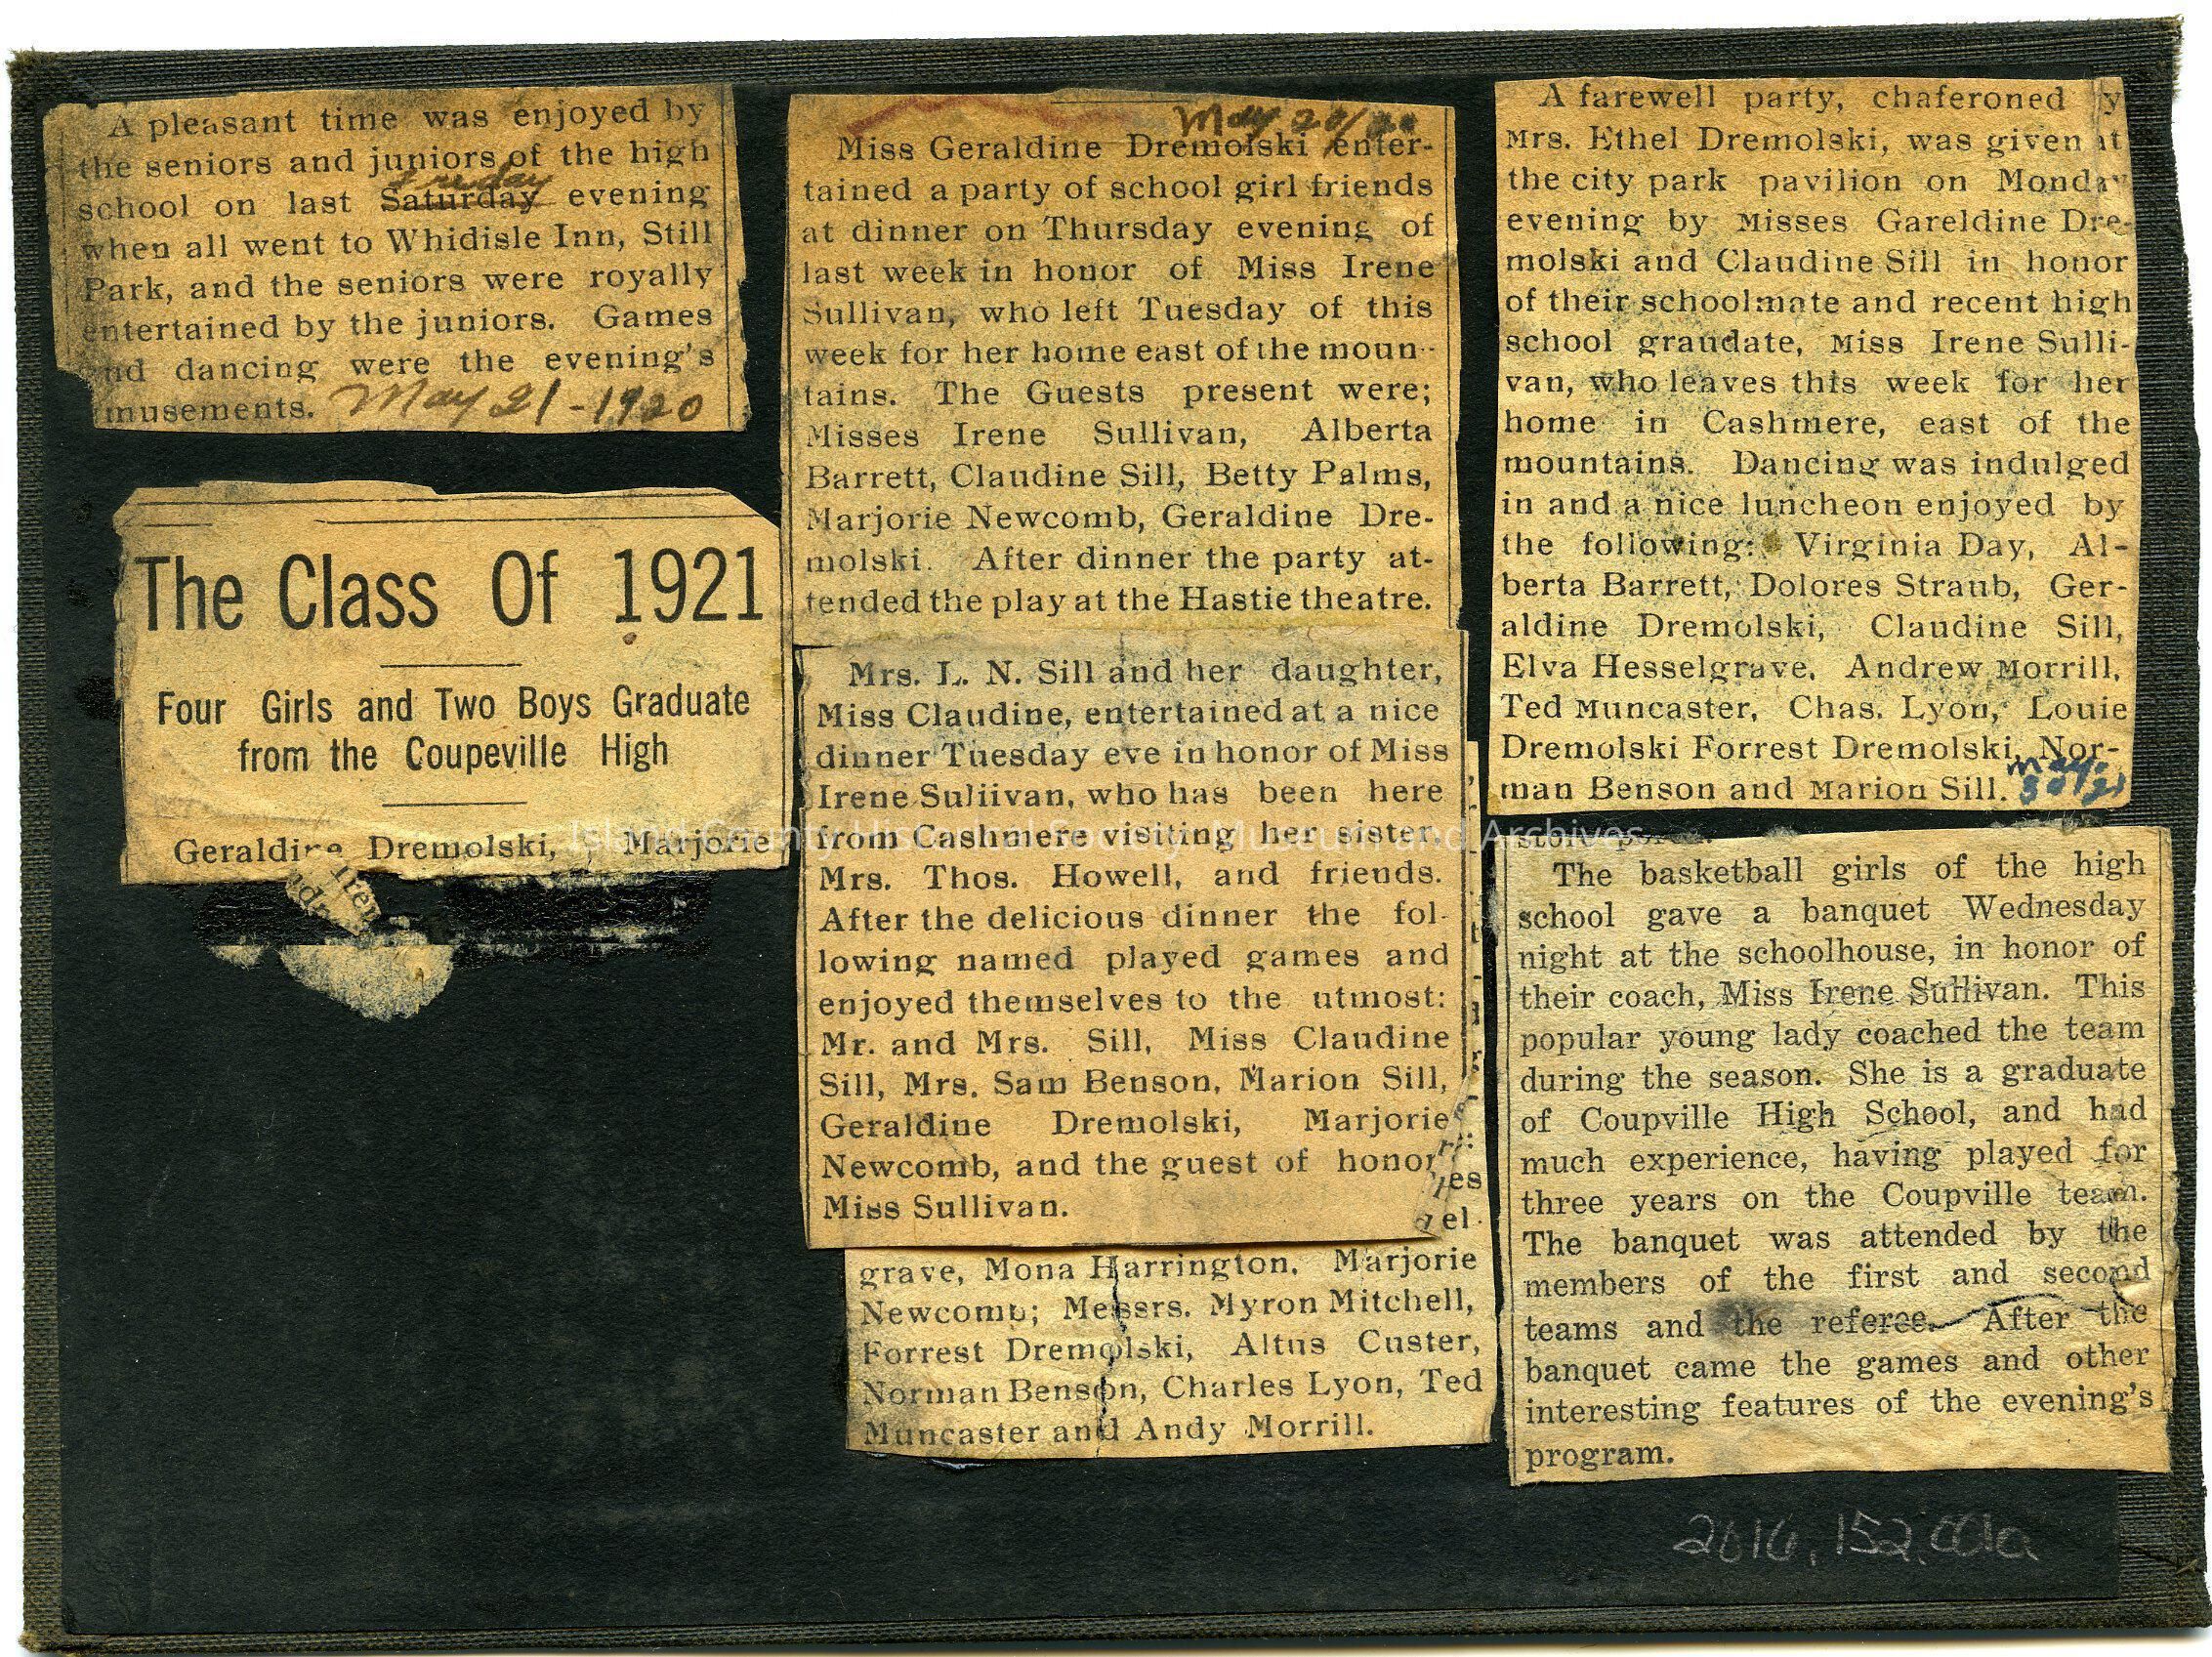 A pleasant time was enjoyed by
the seniors and juniors of the high
school on last Saturday evening
when all went to Whidisle Inn, Still
Park, and the seniors were royally
entertained by the juniors. Games
and dancing were the evening's
amusements. May 21-1920
The Class Of 1921
Four Girls and Two Boys Graduate
from the Coupeville High
Geraldine Dremolski, Marjorie
May 20/20
Miss Geraldine Dremolski enter-
tained a party of school girl friends
at dinner on Thursday evening of
last week in honor of Miss Irene
Sullivan, who left Tuesday of this
week for her home east of the moun-
tains. The Guests present were;
Misses Irene Sullivan, Alberta
Barrett, Claudine Sill, Betty Palms,
Marjorie Newcomb, Geraldine Dre-
molski. After dinner the party at-
tended the play at the Hastie theatre.
Mrs. L. N. Sill and her daughter,
Miss Claudine, entertained at a nice
dinner Tuesday eve in honor of Miss
Irene Suliivan, who has been here
from Cashmere visiting her sister,
Mrs. Thos. Howell, and friends.
After the delicious dinner the fol-
lowing named played games and
enjoyed themselves to the utmost:
Mr. and Mrs. Sill, Miss Claudine
Sill, Mrs. Sam Benson, Marion Sill,
Geraldine Dremolski, Marjorie
Newcomb, and the guest of honor
Miss Sullivan.
grave, Mona Harrington, Marjorie
Newcomb; Messrs. Myron Mitchell,
Forrest Dremolski, Altus Custer,
Norman Benson, Charles Lyon, Ted
Muncaster and Andy Morrill.
A farewell party, chaferoned y
Mrs. Ethel Dremolski, was given at
the city park pavilion on Monday
evening by Misses Gareldine Dre-
molski and Claudine Sill in honor
of their schoolmate and recent high
school graudate, Miss Irene Sulli-
van, who leaves this week for her
home in Cashmere, east of the
mountains. Dancing was indulged
in and a nice luncheon enjoyed by
the following: Virginia Day, Al-
berta Barrett, Dolores Straub, Ger-
aldine Dremolski, Claudine Sill,
Elva Hesselgrave, Andrew Morrill,
Ted Muncaster, Chas. Lyon, Louie
Dremolski Forrest Dremolski, Nor-
man Benson and Marion Sill. May
The basketball girls of the high
school gave a banquet Wednesday
night at the schoolhouse, in honor of
their coach, Miss Irene Sullivan. This
popular young lady coached the team
during the season. She is a graduate
of Coupville High School, and had
much experience, having played for
three years on the Coupville team.
The banquet was attended by the
members of the first and second
teams and the referee. After the
banquet came the games and other
interesting features of the evening's
program.
2016.152.001a
Island County Historical Society Museum and Archives